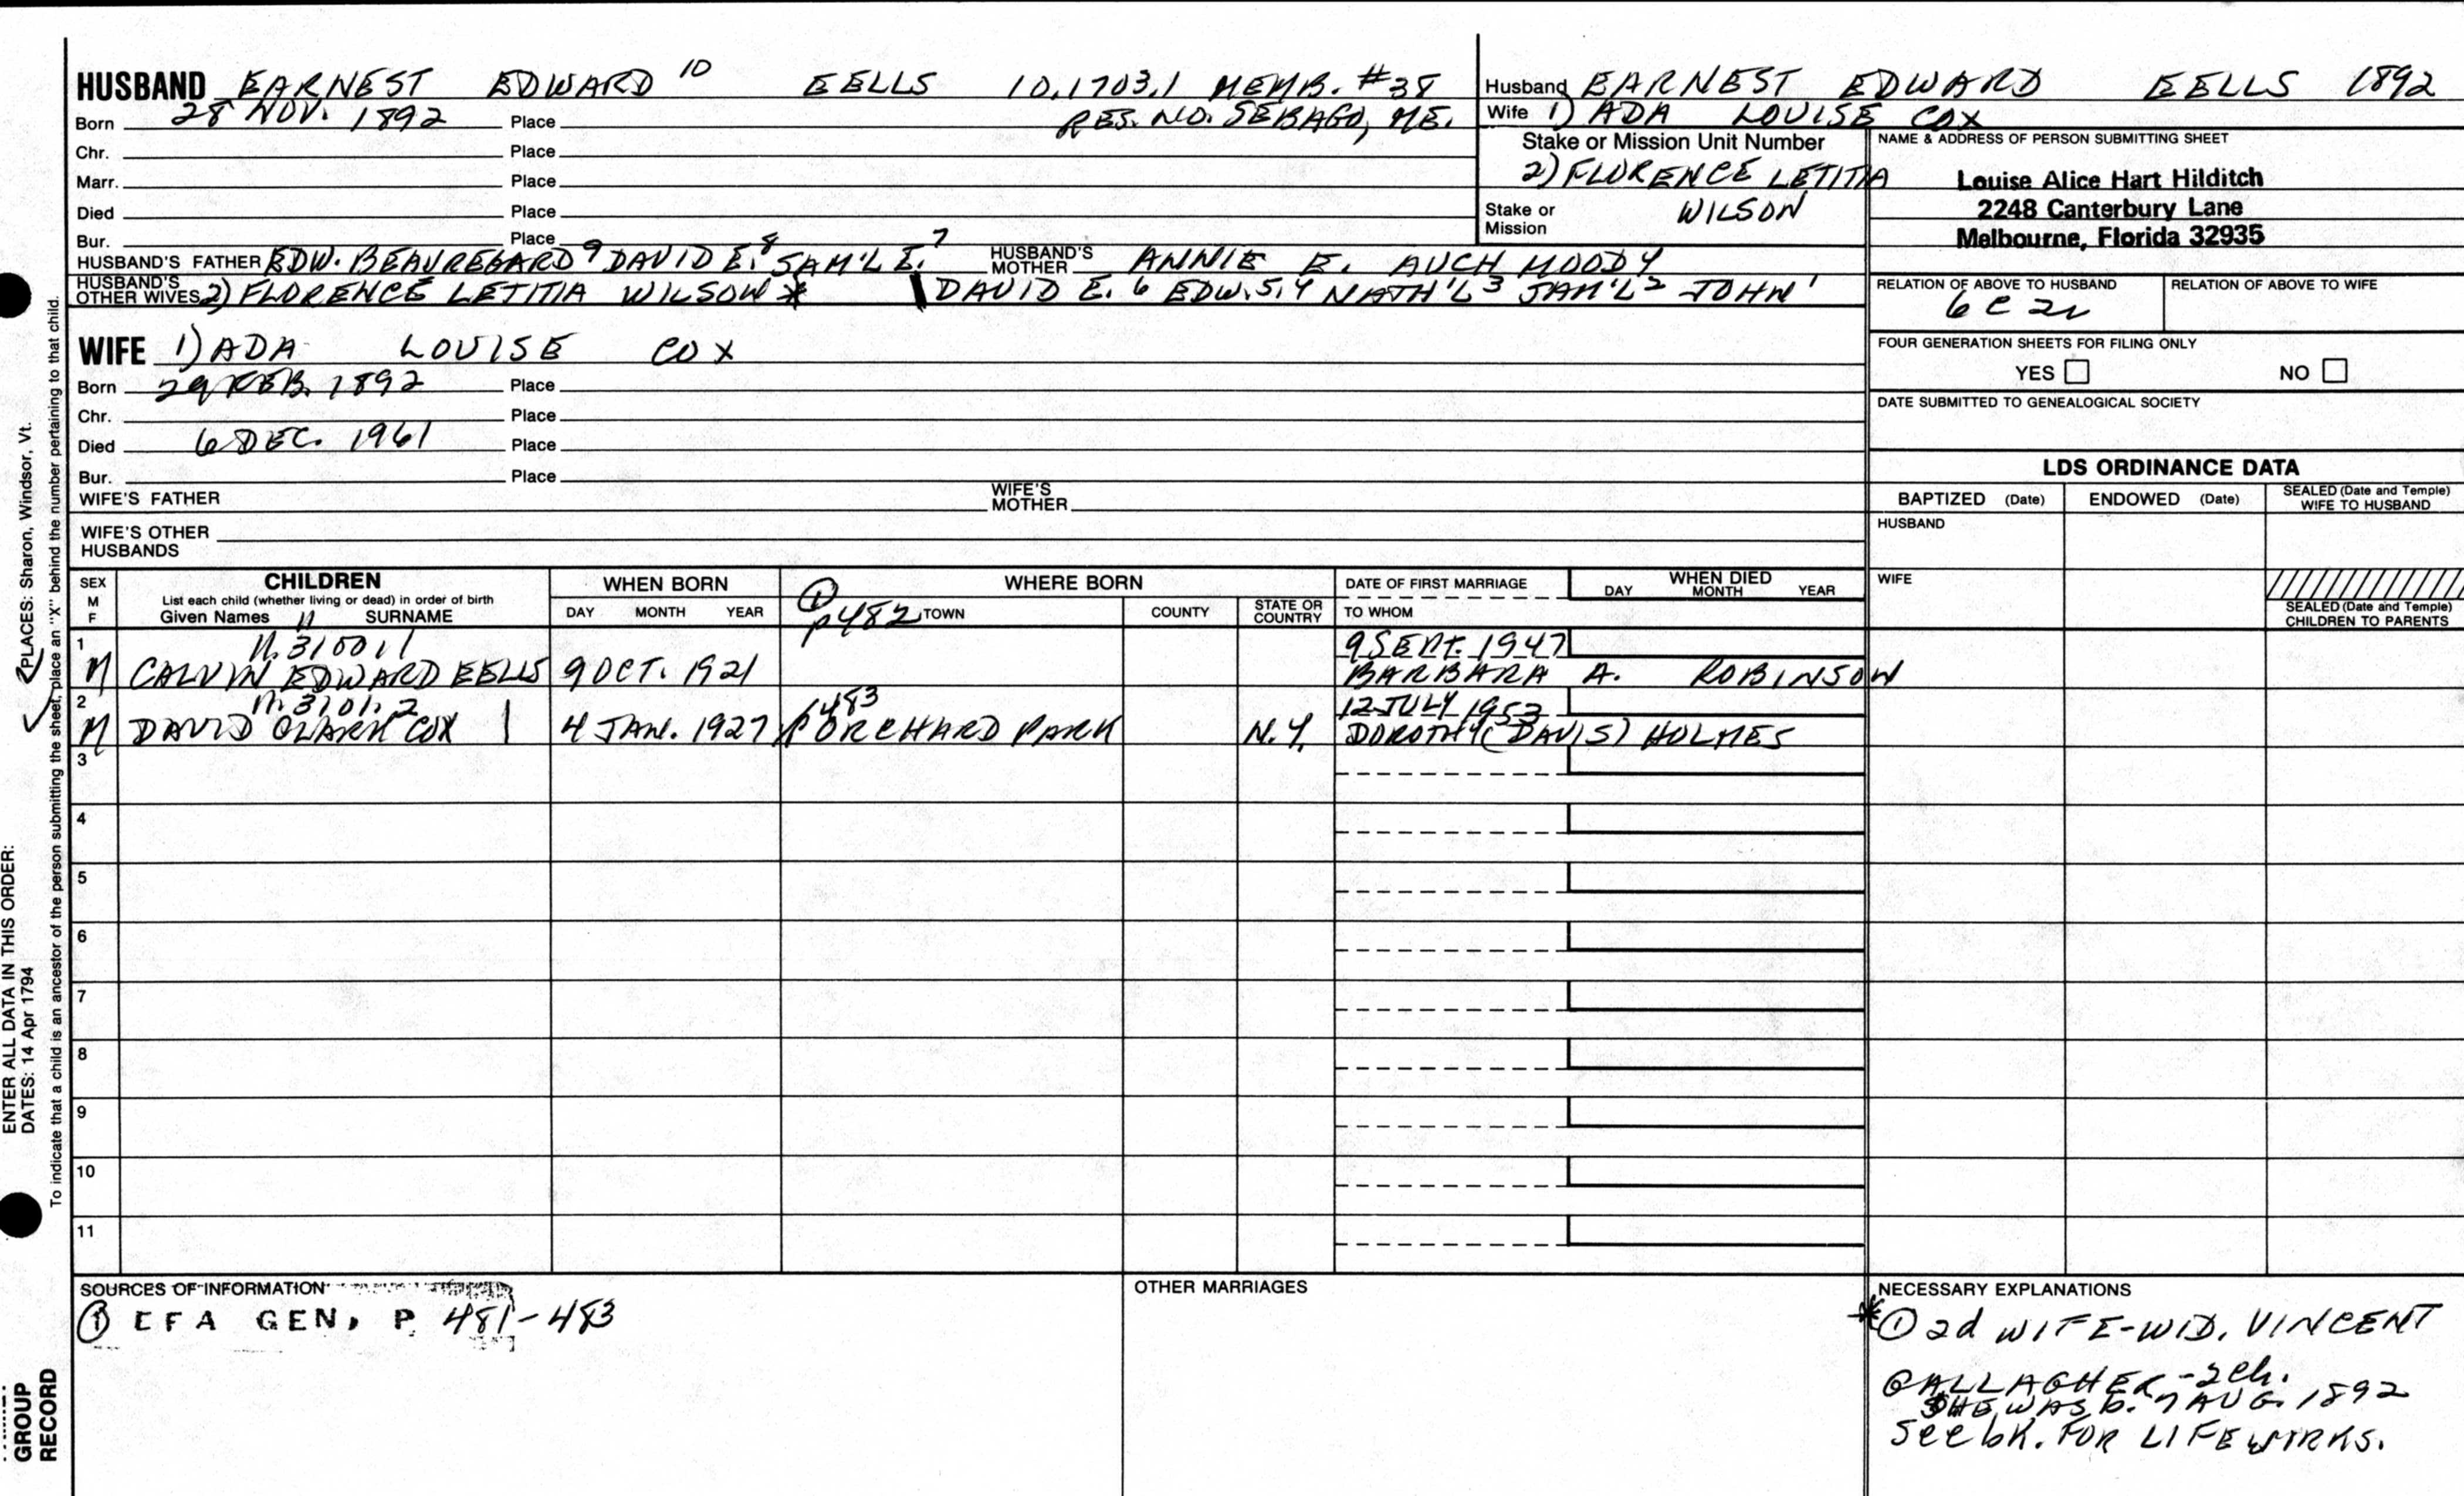 HUSBAND EARNEST EDWARD 10 EELLS 10,1703,1 MEMB. #38
Born 28 NOV. 1892 Place RES. NO. SEBAGO, ME.
Chr. Place
Marr. Place
Died Place
Bur. Place
HUSBAND'S FATHER EDW. BEAUREGARD 9 DAVID E. 8 SAM'L E. 7 HUSBAND'S MOTHER ANNIE E. AUCH MOODY
HUSBAND'S OTHER WIVES 2) FLORENCE LETITIA WILSON * DAVID E. 6 EDW. 5,4 NATH'L 3 SAM'L 2 JOHN 1
WIFE 1) ADA LOUISE COX
Born 29 FEB. 1892 Place
Chr. Place
Died 6 DEC. 1961 Place
Bur. Place
WIFE'S FATHER WIFE'S MOTHER
WIFE'S OTHER HUSBANDS
Husband EARNEST EDWARD EELLS 1892
Wife 1) ADA LOUISE COX
Stake or Mission Unit Number
2) FLORENCE LETITIA
Stake or Mission WILSON
NAME & ADDRESS OF PERSON SUBMITTING SHEET
Louise Alice Hart Hilditch
2248 Canterbury Lane
Melbourne, Florida 32935
RELATION OF ABOVE TO HUSBAND RELATION OF ABOVE TO WIFE
6 C 2r
FOUR GENERATION SHEETS FOR FILING ONLY
YES NO
DATE SUBMITTED TO GENEALOGICAL SOCIETY
LDS ORDINANCE DATA
BAPTIZED (Date) ENDOWED (Date) SEALED (Date and Temple) WIFE TO HUSBAND
HUSBAND
WIFE
SEALED (Date and Temple) CHILDREN TO PARENTS
SEX M F
CHILDREN
List each child (whether living or dead) in order of birth
Given Names 11 SURNAME
WHEN BORN
DAY MONTH YEAR
WHERE BORN
① p 482 TOWN COUNTY STATE OR COUNTRY
DATE OF FIRST MARRIAGE
TO WHOM
WHEN DIED
DAY MONTH YEAR
1 9 SEPT. 1947
M CALVIN EDWARD EELLS 9 OCT. 1921 BARBARA A. ROBINSON
2 483 12 JULY 1953
M DAVID CLARK COX 4 JAN. 1927 ORCHARD PARK N.Y. DOROTHY (DAVIS) HOLMES
3
4
5
6
7
8
9
10
11
SOURCES OF INFORMATION
① EFA GEN, P. 481-483
OTHER MARRIAGES
NECESSARY EXPLANATIONS
* ① 2d WIFE-WID. VINCENT
GALLAGHER - 2 ch.
SHE WAS b. 7 AUG. 1892
See bk. FOR LIFEWORKS.
PLACES: Sharon, Windsor, Vt.
ENTER ALL DATA IN THIS ORDER:
DATES: 14 Apr 1794
To indicate that a child is an ancestor of the person submitting the sheet, place an "X" behind the number pertaining to that child.
GROUP
RECORD